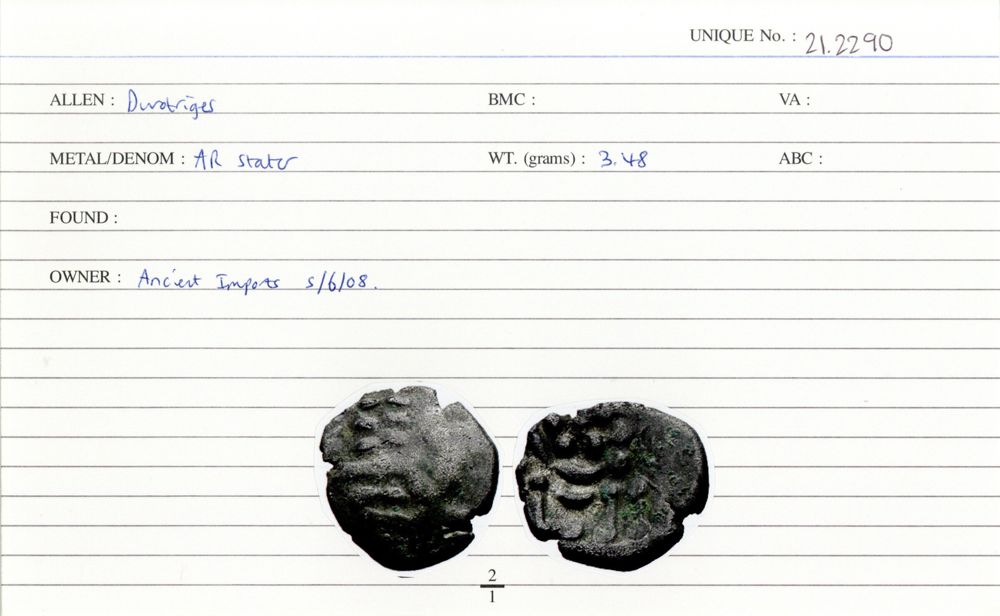 UNIQUE No. : 21.2290
ALLEN : Durotriges BMC : VA :
METAL/DENOM : AR stater WT. (grams) : 3.48 ABC :
FOUND :
OWNER : Ancient Imports 5/6/08.
2
1